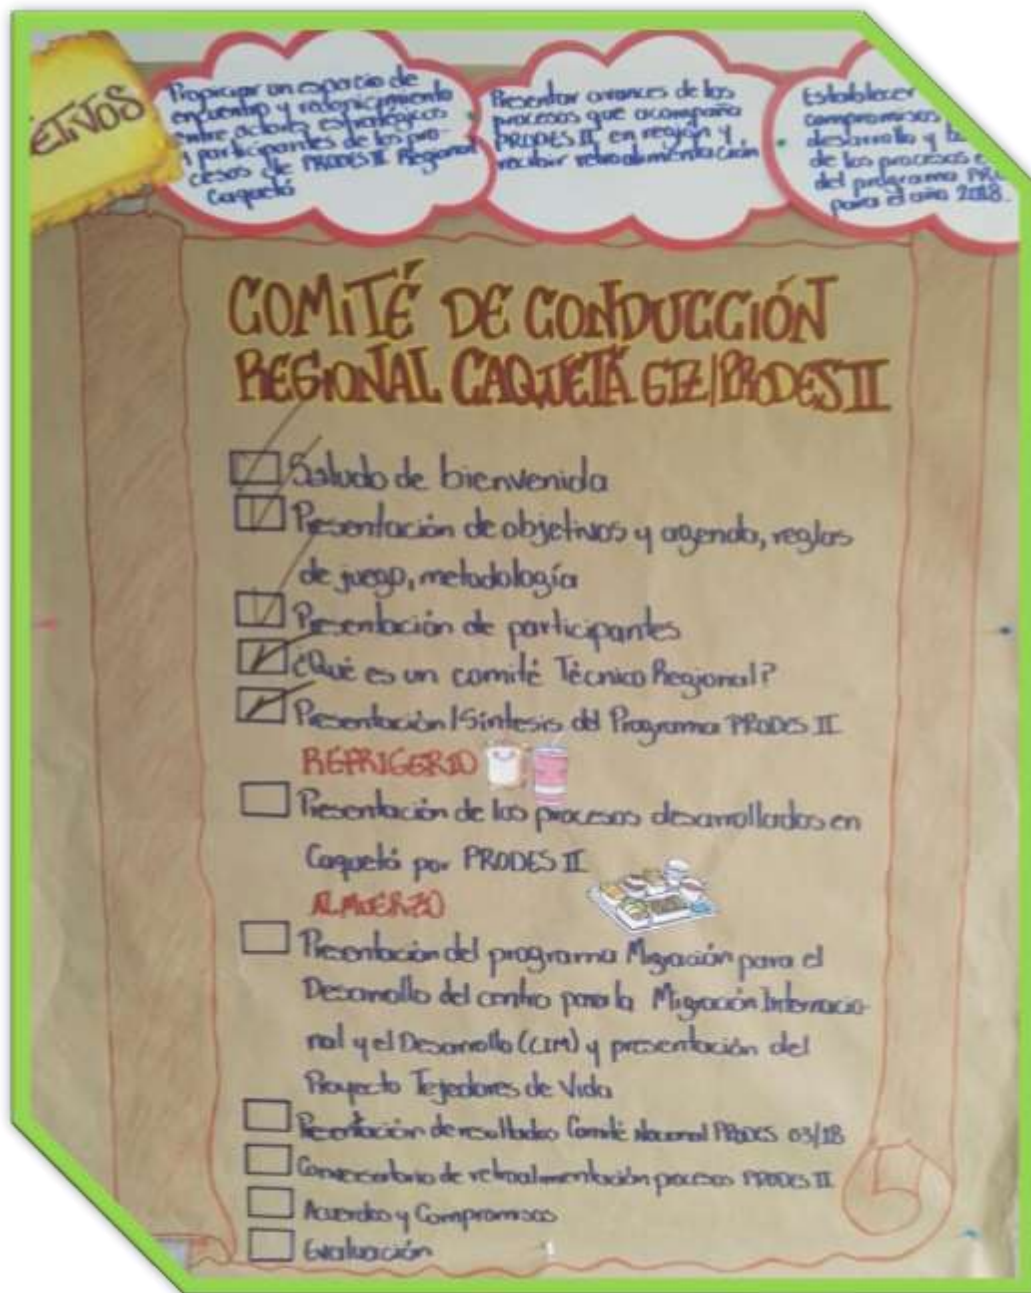 ETIVOS
Propiciar un espacio de
encuentro y reconocimiento
entre actores estratégicos
y participantes de los pro-
cesos de PRODES II Regional
Caquetá
Presentar avances de los
procesos que acompaña
PRODES II en región y
recibir retroalimentación
Establecer
compromisos
desarrollo y
de los procesos
del programa PR
para el año 2018.
COMITÉ DE CONDUCCIÓN
REGIONAL CAQUETÁ GIZ/PRODES II
Saludo de bienvenida
Presentación de objetivos y agenda, reglas
de juego, metodología
Presentación de participantes
¿Qué es un comité Técnico Regional?
Presentación/Síntesis del Programa PRODES II
REFRIGERIO
Presentación de los procesos desarrollados en
Caquetá por PRODES II
ALMUERZO
Presentación del programa Migración para el
Desarrollo del centro para la Migración Internacio-
nal y el Desarrollo (CIM) y presentación del
Proyecto Tejedores de Vida
Presentación de resultados Comité Nacional PRODES 03/18
Conversatorio de retroalimentación procesos PRODES II
Acuerdos y Compromisos
Evaluación